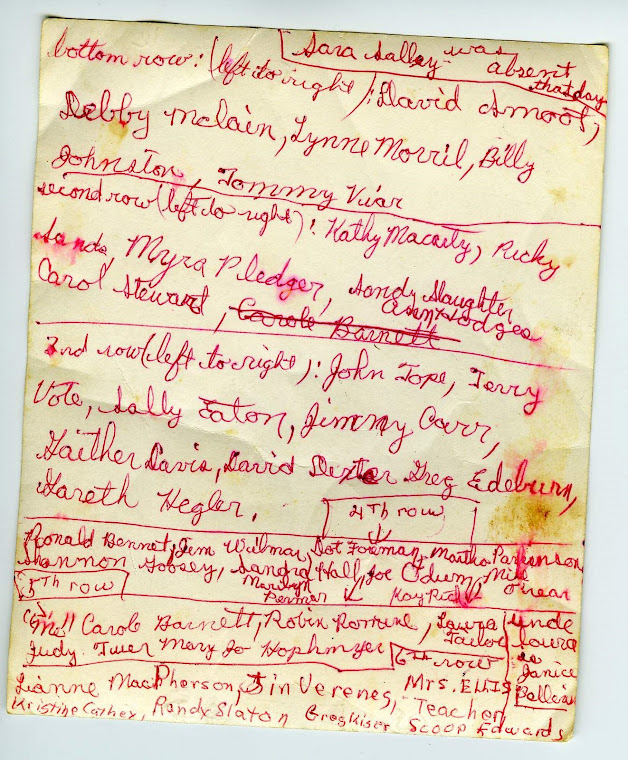 Sara Salley was absent that day
bottom row: (left to right): David Smoot,
Debby McLain, Lynne Morril, Billy
Johnston, Tommy Viar
second row (left to right): Kathy Macaily, Ricky
Sands, Myra Pledger, Sandy Slaughter
Carol Steward, Carole Barnett Hodges
3rd row (left to right): John Tope, Terry
Vote, Sally Eaton, Jimmy Carr,
Gaither Davis, David Dexter Greg Edeburn,
Gareth Hegler,
4th row
Ronald Bennet, Jim Wilmar, Dot Foreman, Martha Parkinson
Shannon Gobsey, Sandra Hall, Joe Odum, Mike O'near
Marilyn Permar
Kay Rich
5th row
Carole Barnett, Robin Romine, Laura Tailor
Judy Twer Mary Jo Hophmyer
under Laura is Janice
6th row
Lianne MacPherson, Jin Verenes, Mrs. Ellis Teacher
Kristine Cathey, Randy Slaton Greg Kiser Scoop Edwards